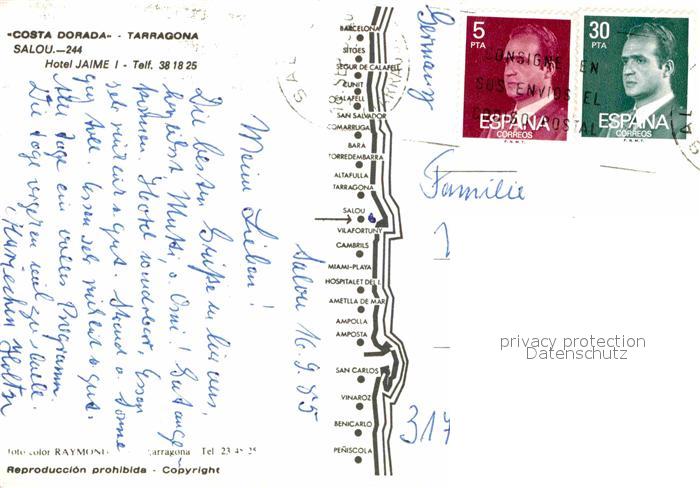 "COSTA DORADA" - TARRAGONA
SALOU.—244
Hotel JAIME I - Telf. 38 18 25
Salou 16.9.85
Meine Lieben!
Die besten Grüße
Mutti, u. Omi! Gut ange-
kommen. Hotel wunderbar, Essen
sehr viel u. gut. Strand u. Sonne
Alle Tage ein volles Programm.
Die Tage vergehen viel zu schnell.
foto color RAYMOND
Tarragona Tel 23
Reproducción prohibida - Copyright
BARCELONA
SITGES
SEGUR DE CALAFELL
CUNIT
CALAFELL
SAN SALVADOR
COMARRUGA
BARA
TORREDEMBARRA
ALTAFULLA
TARRAGONA
SALOU
VILAFORTUNY
CAMBRILS
MIAMI-PLAYA
HOSPITALET DEL I.
AMETLLA DE MAR
AMPOLLA
AMPOSTA
SAN CARLOS
VINAROZ
BENICARLO
PEÑISCOLA
Germany
5
PTA
ESPAÑA
CORREOS
F.N.M.T.
30
PTA
ESPAÑA
CORREOS
F.N.M.T.
CONSIGNE EN
SUS ENVIOS EL
CODIGO POSTAL
Familie
317
privacy protection
Datenschutz